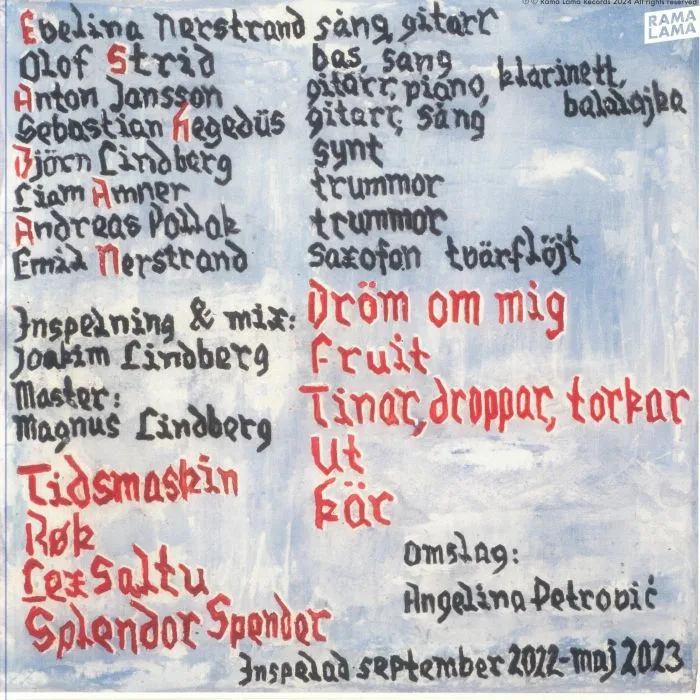 ℗ © Rama Lama Records 2024 All rights reserved
RAMA
LAMA
Evelina Nerstrand sång, gitarr
Olof Strid bas, sång
Anton Jansson gitarr, piano, klarinett, balalajka
Sebastian Hegedüs gitarr, sång
Björn Lindberg synt
Liam Amner trummor
Andreas Pollak trummor
Emil Nerstrand saxofon tvärflöjt
Inspelning & mix:
Joakim Lindberg
Master:
Magnus Lindberg
Tidsmaskin
Røk
Lex Saltu
Splendor Spendor
Dröm om mig
Fruit
Tinar, droppar, torkar
Ut
Kär
Omslag:
Angelina Petrović
Inspelad september 2022-maj 2023